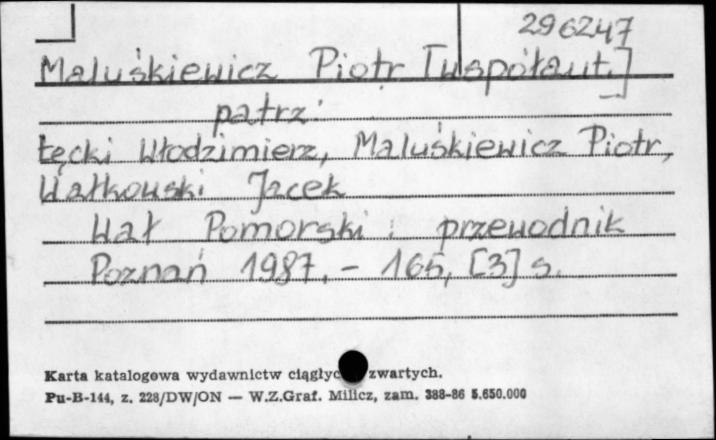 296247
Maluśkiewicz Piotr [współaut.]
patrz:
Łęcki Włodzimierz, Maluśkiewicz Piotr,
Wałkowski Jacek
Wał Pomorski : przewodnik
Poznań 1987. - 165, [3] s.
Karta katalogowa wydawnictw ciągłyc zwartych.
Pu-B-144, z. 228/DW/ON — W.Z.Graf. Milicz, zam. 388-86 5.650.000